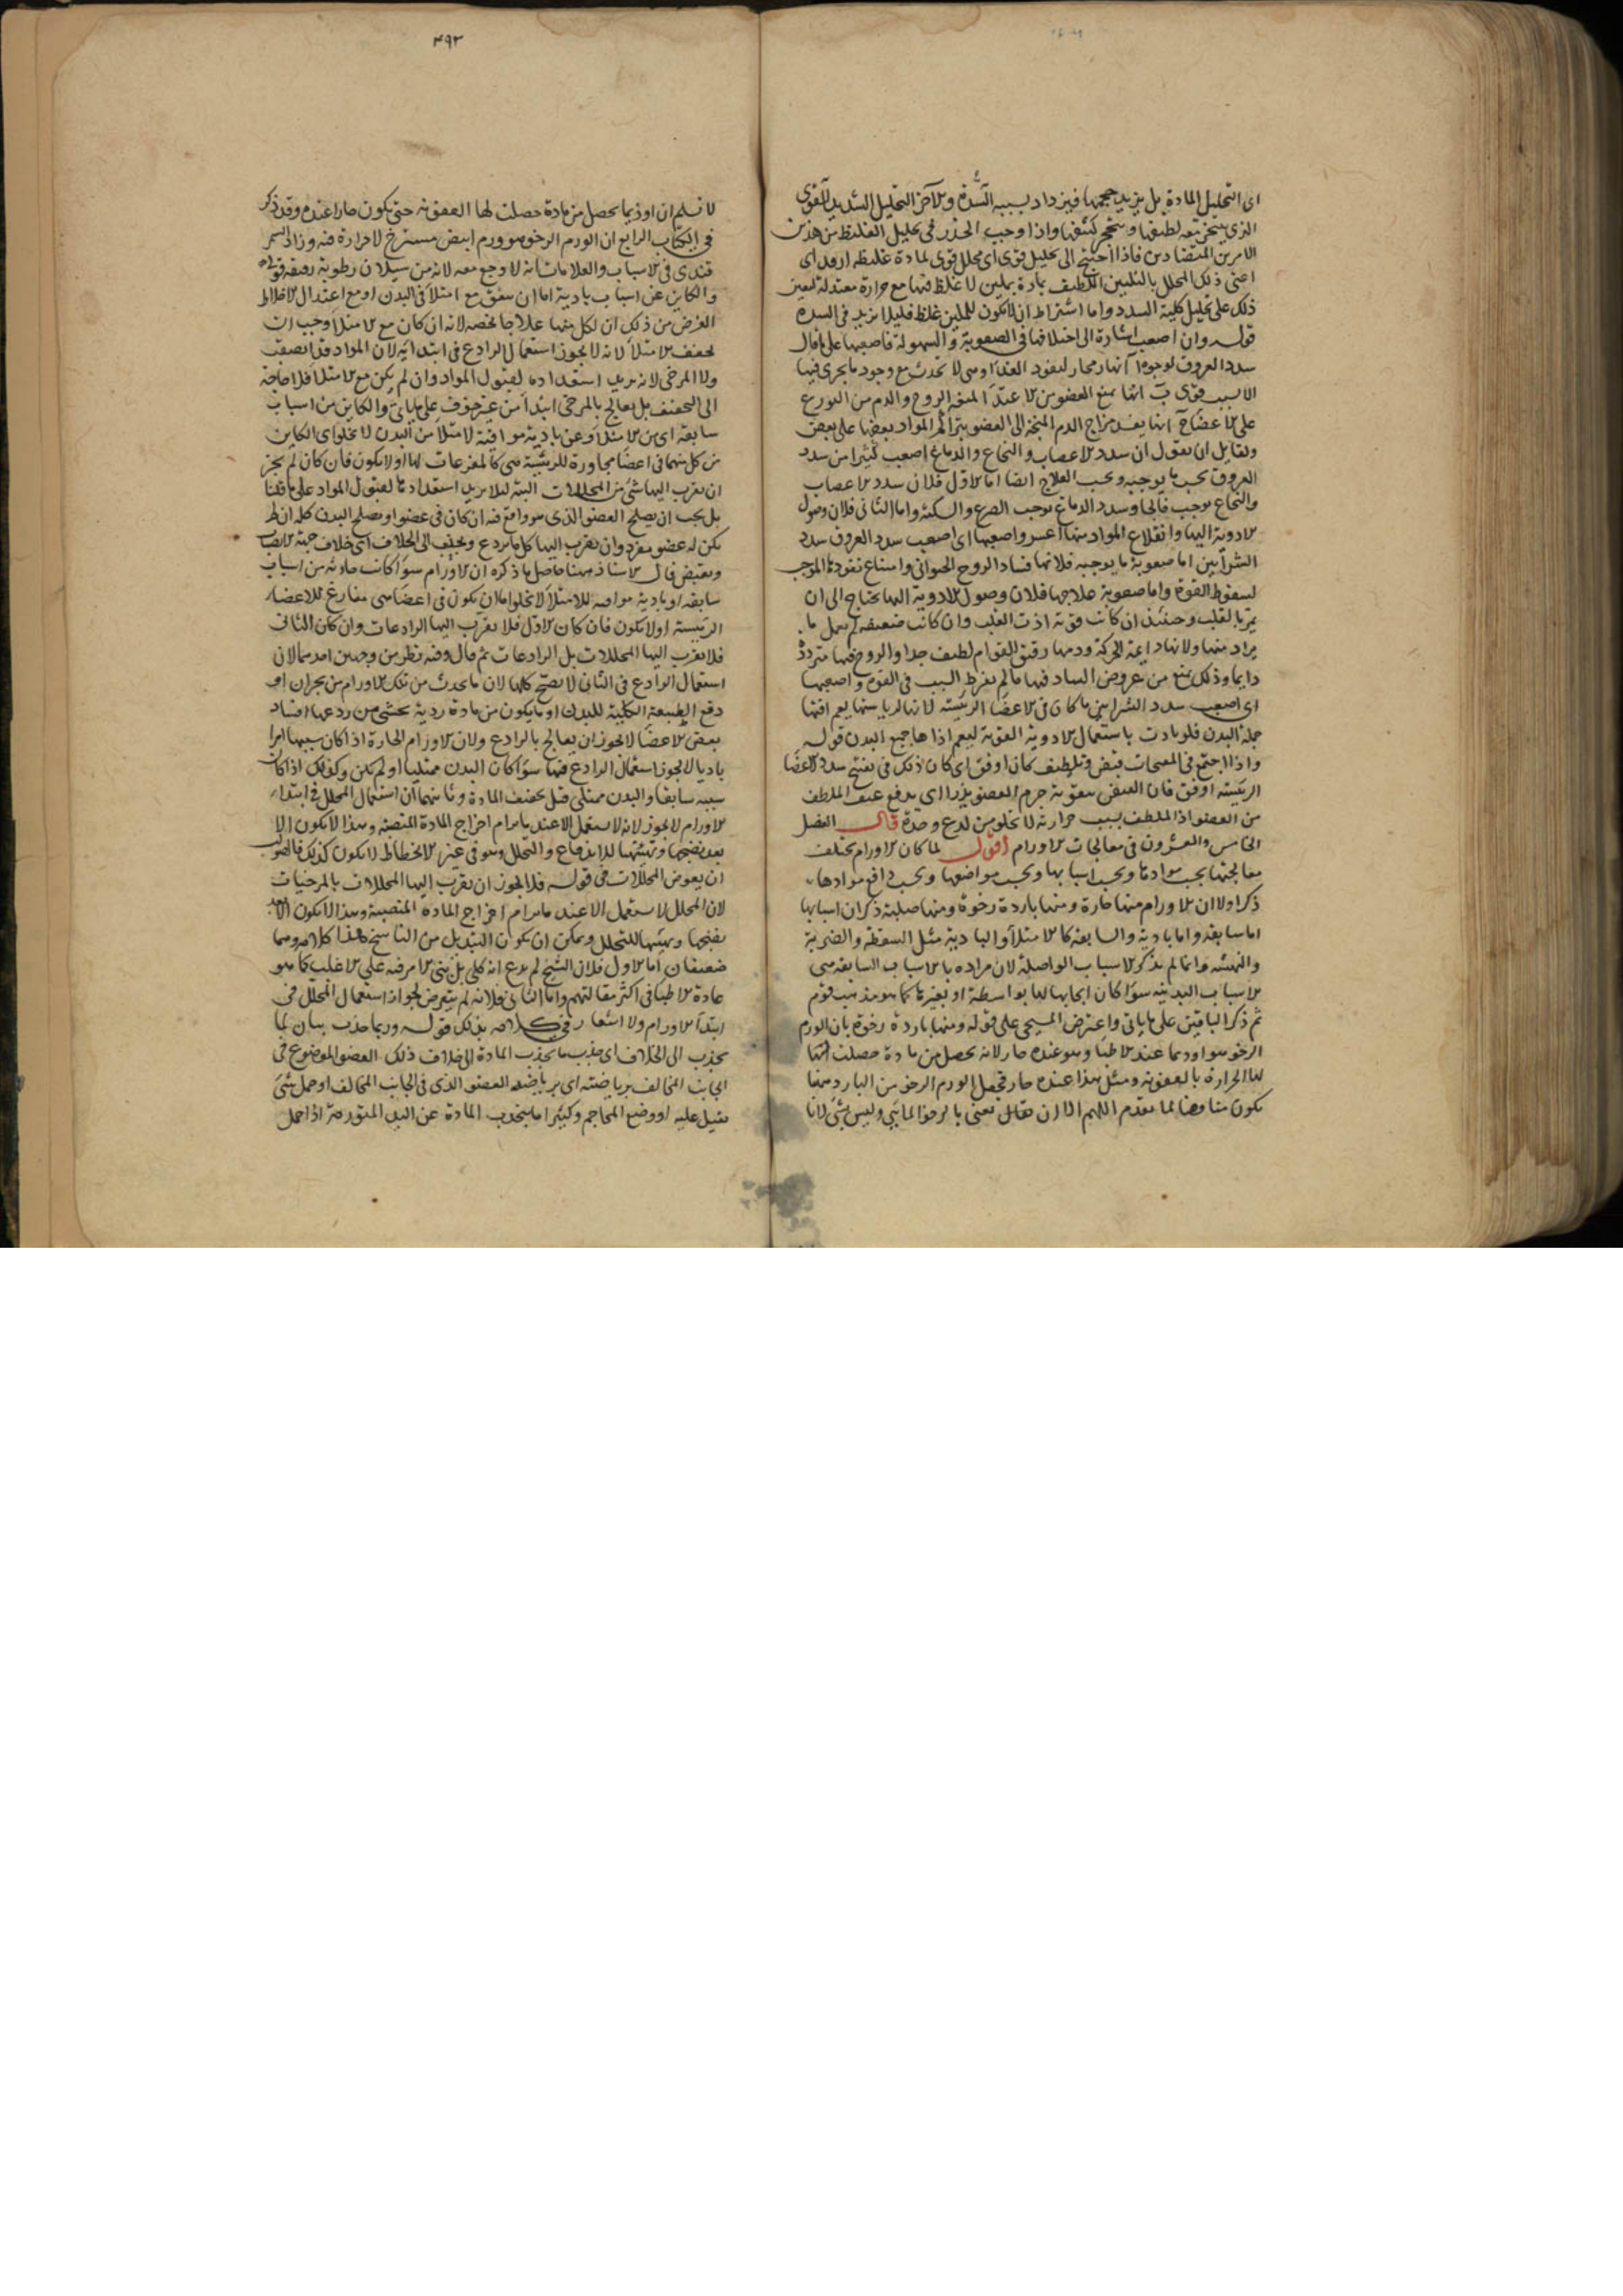 اى التحليل المادة بل يزيد حجمها فيزداد بسببه السدة والآخر التحليل الشديد القوى
الذى يتبخر معه لطيفها ويتحجر كثيفها واذا وجب الحذر فى تحليل الغليظ من هذين
الامرين المتضادين فاذا احتيج الى تحليل قوى اى محلل قوى لمادة غليظة اردف اى
اعنى ذلك المحلل بالتليين اللطيف بمادة بملين لا غلظ فيها مع حرارة معتدلة ليعين
ذلك على تحليل كلية السدد واما اشتراط ان لا يكون للملين غلظ فليلا يزيد فى السدة
قوله وان اصعب اشارة الى اختلافها فى الصعوبة والسهولة فاصعبها على ما قال
سدد العروق لوجوه آ انها مجار لنفوذ الغذا وهى لا تحدث مع وجود ما يجرى فيها
الا لسبب قوى ب انها تمنع العضو من الاغتذا لمنع الروح والدم من التوزع
على الاعضا ج انها يفسد مزاج الدم المتجه الى العضو بتراكم المواد بعضها على بعض
ولقايل ان يقول ان سدد الاعصاب والنخاع والدماغ اصعب كثيرا من سدد
العروق بحسب ما يوجبه وبحسب العلاج ايضا اما الاول فلان سدد الاعصاب
والنخاع يوجب فالجا وسدد الدماغ يوجب الصرع والسكتة واما الثانى فلان وصول
الادوية اليها وانقلاع المواد منها اعسر واصعبها اى اصعب سدد العروق سدد
الشرايين اما صعوبة ما يوجبه فلانها فساد الروح الحيوانى وامتناع نفوذها الموجب
لسقوط القوة واما صعوبة علاجها فلان وصول الادوية اليها يحتاج الى ان
يمر بالقلب وحينئذ ان كانت قوية اذت القلب وان كانت ضعيفة لم تعمل ما
يراد منها ولانها دايمة الحركة ودمها رقيق القوام لطيف جدا والروح فيها متردد
دايما وذلك يمنع من عروض الساد فيها ما لم يفرط السبب فى القوة واصعبها
اى اصعب سدد الشرايين ما كان فى الاعضا الرئيسة لانها لرياستها يعم افتها
جملة البدن فلو بادت باستعمال الادوية القوية ليعم اذاها جميع البدن قوله
واذا اجتمع فى المفتحات قبض وتلطيف كان اوفق اى كان ذلك فى تفتيح سدد الاعضا
الرئيسة اوفق فان القبض بتقوية جرم العضو يدرا اى يدفع عنف الملطف
من العضو اذ الملطف بسبب حرارته لا يخلو من لدع وحدة قال الفصل
الخامس والعشرون فى معالجات الاورام اقول لما كان الاورام تختلف
معالجتها بحسب موادها وبحسب اسبابها وبحسب مواضعها وبحسب دافع موادها
ذكر اولا ان الاورام منها حارة ومنها باردة رخوة ومنها صلبة ثم ذكر ان اسبابها
اما سابقة واما بادية والسابقة كالامتلا والبادية مثل السقطة والضربة
والنهشة وانما لم يذكر الاسباب الواصلة لان مراده بالاسباب السابقة هى
الاسباب البدنية سوا كان ايجابها لها بواسطة او بغيرها كما هو مذهب قوم
ثم ذكر الباقيتين على ما ياتى واعترض المسيحى على قوله ومنها باردة رخوة بان الورم
الرخو هو اوذيما عند الاطبا وهو عنده حار لانه يحصل من مادة حصلت
لها الحرارة بالعفونة ومثل هذا عنده حار فجعل الورم الرخو من البارد ههنا
يكون مناقضا لما تقدم اللهم الا ان يقال يعنى بالرخو المايى وليس بشى لانا
٤٩٣
لا نسلم ان اوذيما يحصل من مادة حصلت لها العفونة حتى يكون حارا عنده وقد ذكر
فى الكتاب الرابع ان الورم الرخو هو ورم ابيض مسترخ لا حرارة فيه وزاد السمر
قندى فى الاسباب والعلامات انه لا وجع معه لانه من سيلان رطوبة رقيقة قوله
والكاين عن اسباب بادية اما ان يتفق مع امتلا فى البدن او مع اعتدال الاخلاط
الغرض من ذلك ان لكل منها علاجا يخصه لانه ان كان مع الامتلا وجب ان
يخفف الامتلا لانه لا يجوز استعمال الرادع فى ابتدايه لان المواد قد انصبت
ولا المرخى لانه يزيد استعداده لقبول المواد وان لم يكن مع الامتلا فلا حاجة
الى التخفيف بل يعالج بالمرخى ابتدا من غير خوف على ما ياتى والكاين من اسباب
سابقة اى من الامتلا وعن بادية موافية لامتلا من البدن لا يخلو اى الكاين
من كل منهما فى اعضا مجاورة للرئيسة هى كالمفرغات لها اولا يكون فان كان لم يجز
ان يقرب اليها شى من المحللات البتة لئلا يزيد استعدادها لقبول المواد على ما قلنا
بل يجب ان يصلح العضو الذى هو دافع فيه ان كان فى عضو او يصلح البدن كله ان لم
يكن له عضو مفرد وان يقرب اليها كل ما يردع ويجذب الى الخلاف اى خلاف جهة
ويقبض قال الاستاذ ههنا حاصل ما ذكره ان الاورام سوا كانت حادثة من اسباب
سابقة او بادية موافية للامتلا لا تخلو اما ان يكون فى اعضا هى مفارغ للاعضا
الرئيسة اولا يكون فان كان الاول فلا يقرب اليها الرادعات وان كان الثانى
فلا يقرب اليها المحللات بل الرادعات ثم قال وفيه نظر من وجهين احدهما لان
استعمال الرادع فى الثانى لا يصح كليا لان ما يحدث من تلك الاورام من بحران او
دفع الطبيعة الكلية للبدن او ما يكون من مادة ردية يخشى من ردعها افساد
بعض الاعضا لا يجوز ان يعالج بالرادع ولان الاورام الحارة اذا كان سببها امرا
باديا لا يجوز استعمال الرادع فيها سوا كان البدن ممتليا او لم يكن وكذلك اذا كان
سببه سابقا والبدن ممتلى قبل تخفيف المادة وثانيهما ان استعمال المحلل فى ابتداء
الاورام لا يجوز لانه لا يستعمل الا عند ما يرام اخراج المادة المنصبة وهذا لا يكون الا
بعد نضجها وتهيئتها للاندفاع والتحلل وهو فى غير الانحطاط لا يكون كذلك فالصواب
ان يعوض المحللات فى قوله فلا يجوز ان يقرب اليها المحللات بالمرخيات
لان المحلل لا يستعمل الا عند ما يرام اخراج المادة المنصبة وهذا لا يكون الا بعد
نضجها وتهيئها للتحلل ويمكن ان يكون التبديل من الناسخ هذا كلامه وهما
ضعيفان اما الاول فلان الشيخ لم يدع انه كلى بل بنى الامر فيه على الاغلب كما هو
عادة الاطبا فى اكثر مقالتهم واما الثانى فلانه لم يتعرض لجواز استعمال المحلل فى
ابتدا الاورام ولا اشعار فى كلامه بذلك قوله وربما جذب بيان لما
يجذب الى الخلاف اى جذب ما يجذب المادة الى خلاف ذلك العضو الموضوع فى
الجانب المخالف برياضته اى برياضة العضو الذى فى الجانب المخالف او حمل شى
ثقيل عليه او وضع المحاجم وكثيرا ما ينجذب المادة عن اليد المتورمة اذا حمل